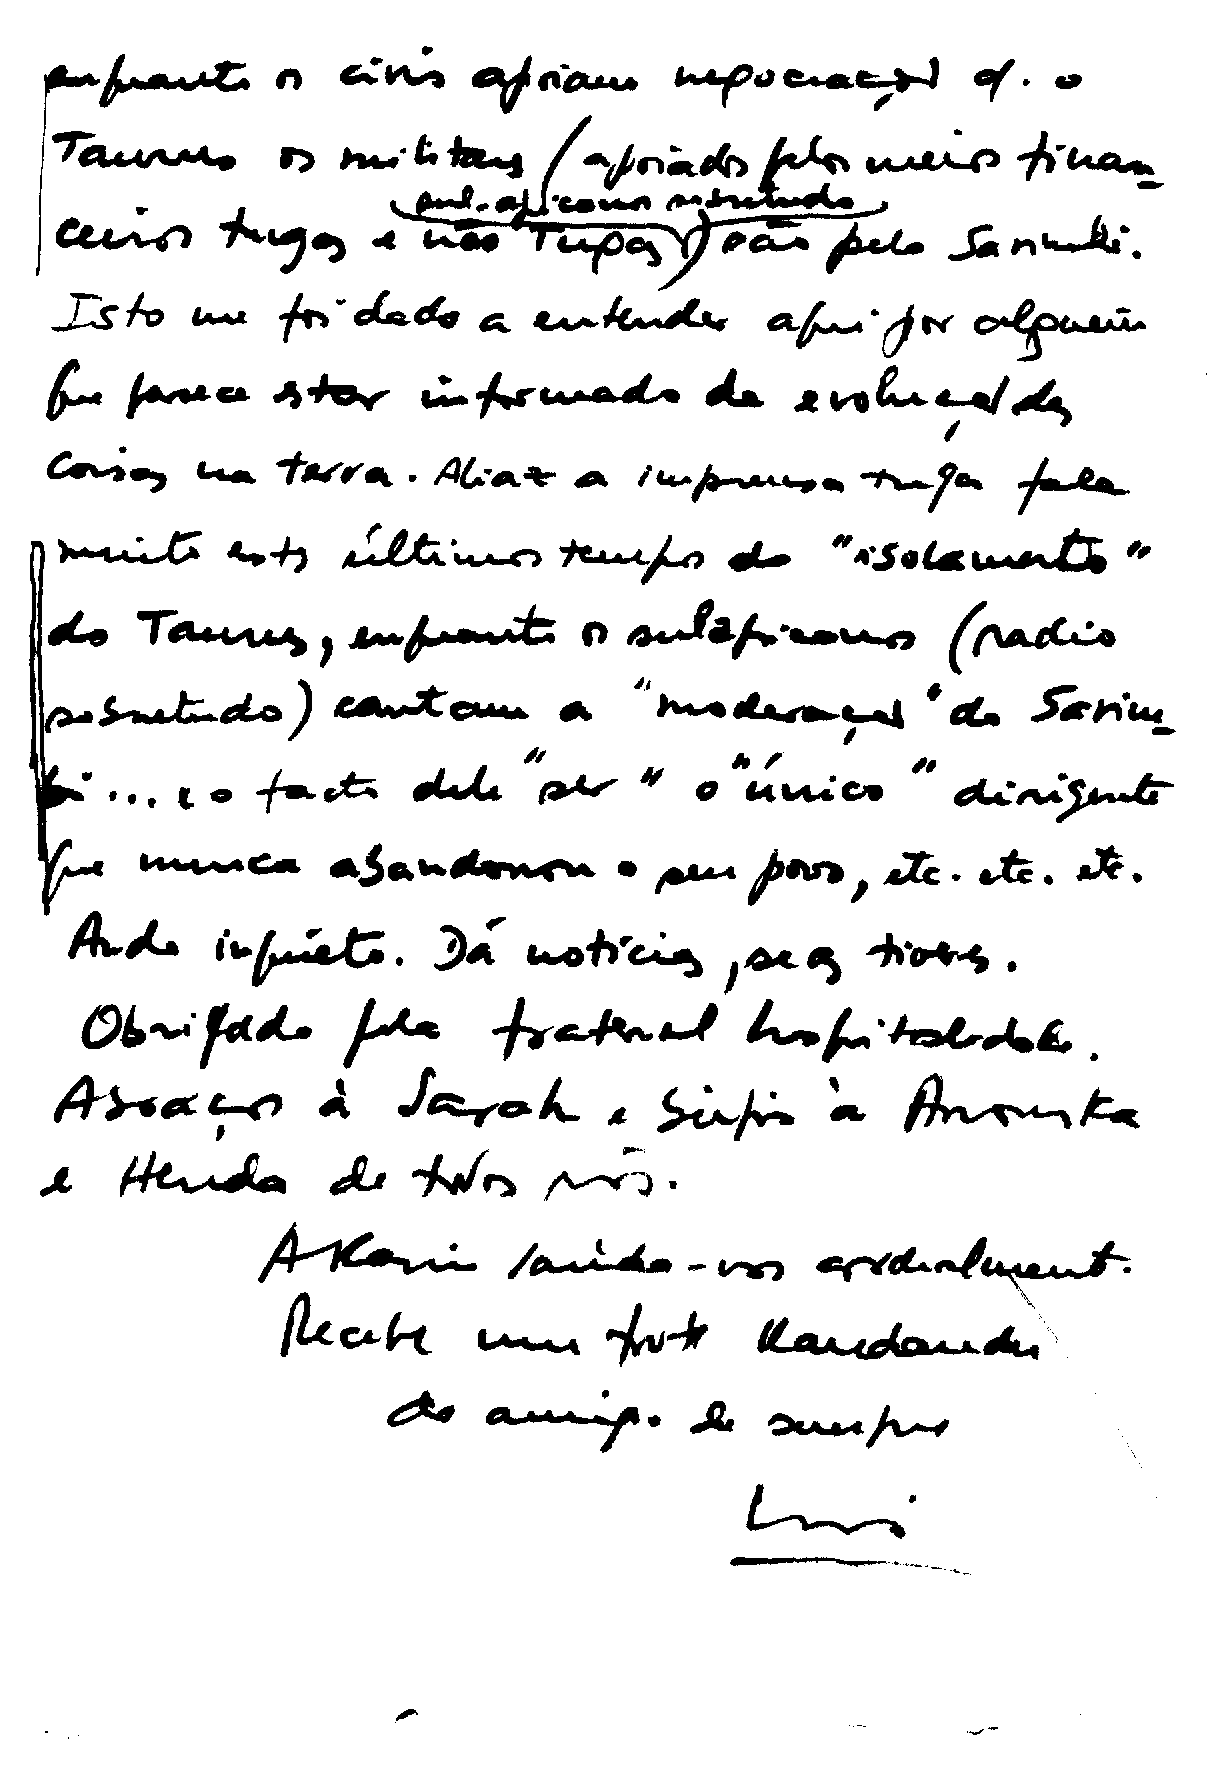 enquanto os civis apoiam negociações c/. o
Taurus os militares (apoiados pelos meios finan-
sul-africanos sobretudo
ceiros tugas e não Tugas) são pelo Savimbi.
Isto me foi dado a entender aqui por alguém
que parece estar informado da evolução das
coisas na terra. Aliaz a imprensa tuga fala
muito estes últimos tempos do "isolamento"
do Taurus, enquanto os sulafricanos (radio
sobretudo) cantam a "moderação" do Savim-
bi... e o facto dele "ser" o "único" dirigente
que nunca abandonou o seu povo, etc. etc. etc.
Ando inquieto. Dá notícias, se as tiveres.
Obrigado pela fraternal hospitalidade.
Abraços à Sarah e bisous à Anouska
e Henda de todos nós.
A Karin saúda-vos cordialment.
Recebe um forte Kandandu
do amigo de sempre